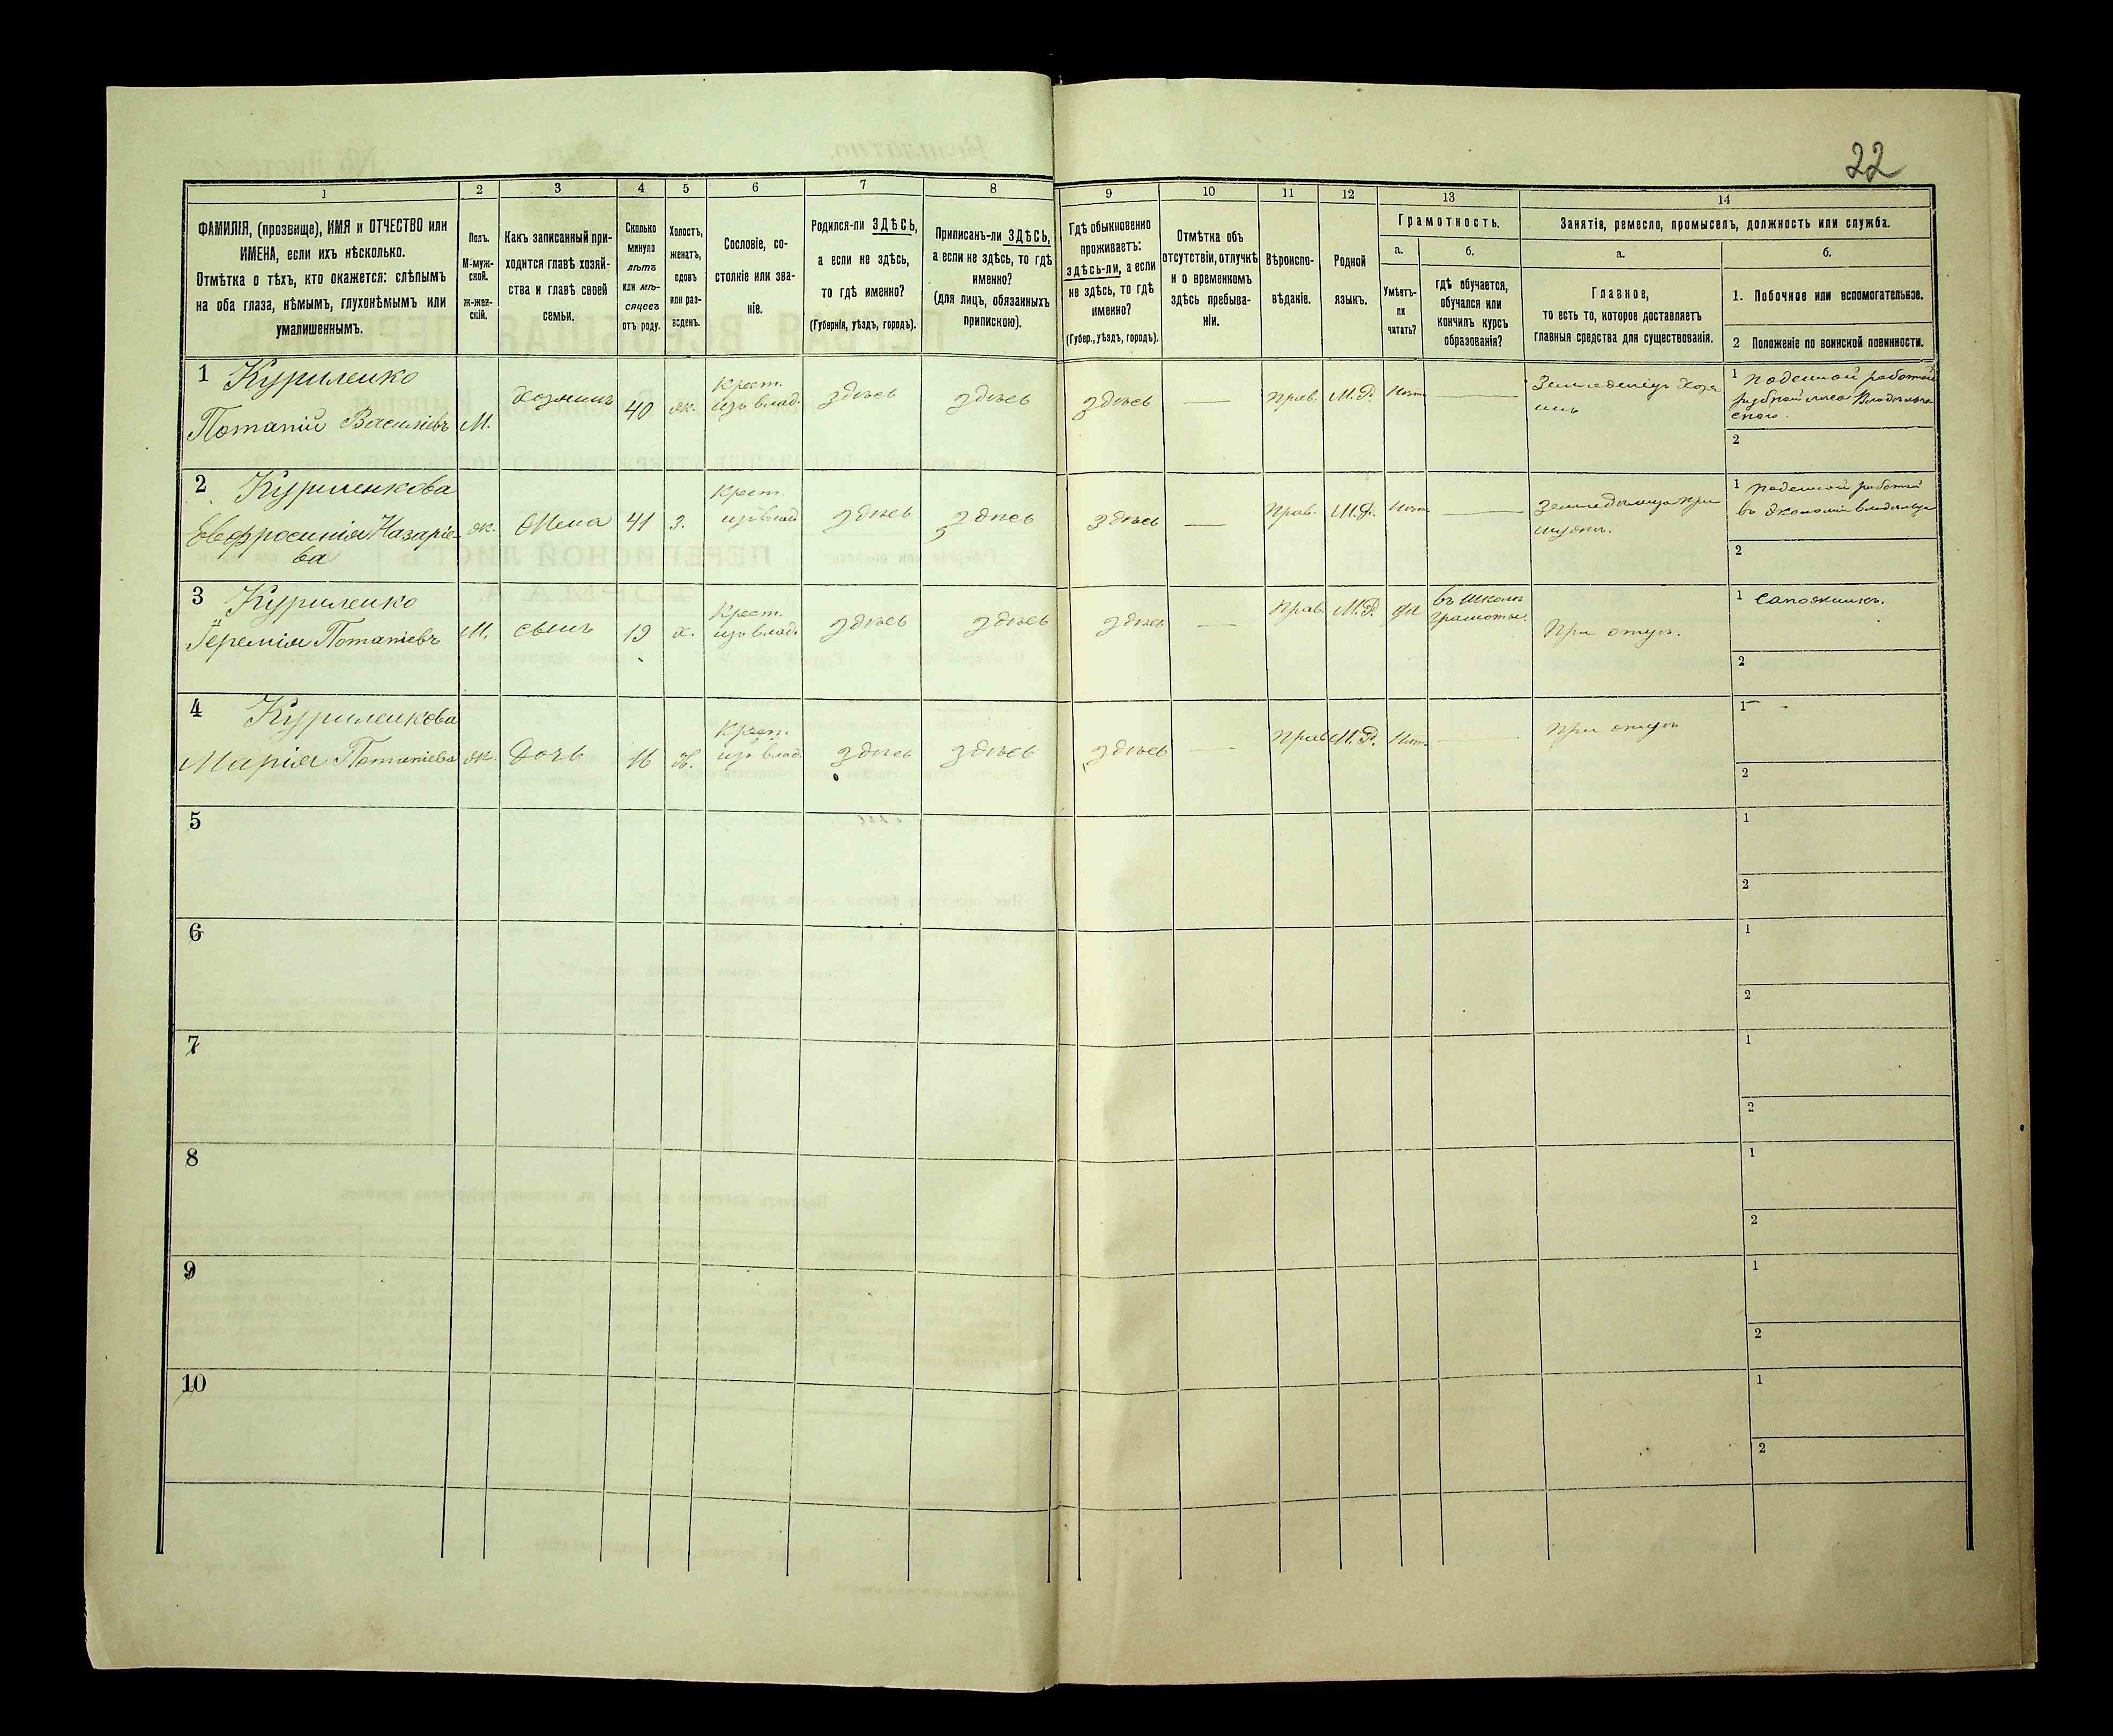 22
1
2
3
4
5
6
7
8
9
10
11
12
13
14
ФАМИЛІЯ, (прозвище), ИМЯ и ОТЧЕСТВО или
ИМЕНА, если ихъ нѣсколько.
Отмѣтка о тѣхъ, кто окажется: слѣпымъ
на оба глаза, нѣмымъ, глухонѣмымъ или
умалишеннымъ.
Полъ.
М-муж-
ской.
ж-жен-
скій.
Какъ записанный при-
ходится главѣ хозяй-
ства и главѣ своей
семьи.
Сколько
минуло
лѣтъ
или мѣ-
сяцевъ
отъ роду.
Холостъ,
женатъ,
вдовъ
или раз-
веденъ.
Сословіе, со-
стояніе или зва-
ніе.
Родился-ли ЗДѢСЬ,
а если не здѣсь,
то гдѣ именно?
(Губернія, уѣздъ, городъ).
Приписанъ-ли ЗДѢСЬ,
а если не здѣсь, то гдѣ
именно?
(для лицъ, обязанныхъ
припискою).
Гдѣ обыкновенно
проживаетъ:
здѣсь-ли, а если
не здѣсь, то гдѣ
именно?
(Губер., уѣздъ, городъ).
Отмѣтка объ
отсутствіи, отлучкѣ
и о временномъ
здѣсь пребыва-
ніи.
Вѣроиспо-
вѣданіе.
Родной
языкъ.
Грамотность.
а.
Умѣетъ-
ли
читать?
б.
гдѣ обучается,
обучался или
кончилъ курсъ
образованія?
Занятія, ремесло, промыселъ, должность или служба.
а.
Главное,
то есть то, которое доставляетъ
главныя средства для существованія.
б.
1. Побочное или вспомогательное.
2 Положеніе по воинской повинности.
1 Куриленко
Потапій Василіевъ
М.
Хозяинъ
40
ж.
Крест.
изъ влад.
здѣсь
здѣсь
здѣсь
—
Прав.
М.Р.
Нѣтъ
—
Земледѣлецъ Хозя
инъ
1 Поденной работой
2
2 Куриленкова
Евфросинія Назаріе-
ва
ж.
Жена
41
з.
Крест.
изъ влад.
здѣсь
здѣсь
здѣсь
—
Прав.
М.Р.
Нѣтъ
—
Земледѣлица при
мужѣ.
1 Поденной работой
въ экономіи владѣльца
2
3 Куриленко
Іеремія Потапіевъ
М.
сынъ
19
х.
Крест.
изъ влад.
здѣсь
здѣсь
здѣсь
—
Прав.
М.Р.
да
въ школѣ
грамоты.
При отцѣ.
1 Сапожникъ.
2
4 Куриленкова
Марія Потапіева
ж.
Дочь
16
Х.
Крест.
изъ влад.
здѣсь
здѣсь
здѣсь
—
Прав.
М.Р.
Нѣтъ
—
При отцѣ
1 —
2
5
1
2
6
1
2
7
1
2
8
1
2
9
1
2
10
1
2